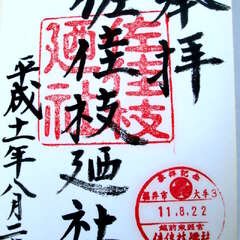 奉拝
佐佳枝廼社
佐佳枝廼社
平成十一年八月二
参拝記念
福井市大手3
11.8.22
越前東照宮
佐佳枝廼社